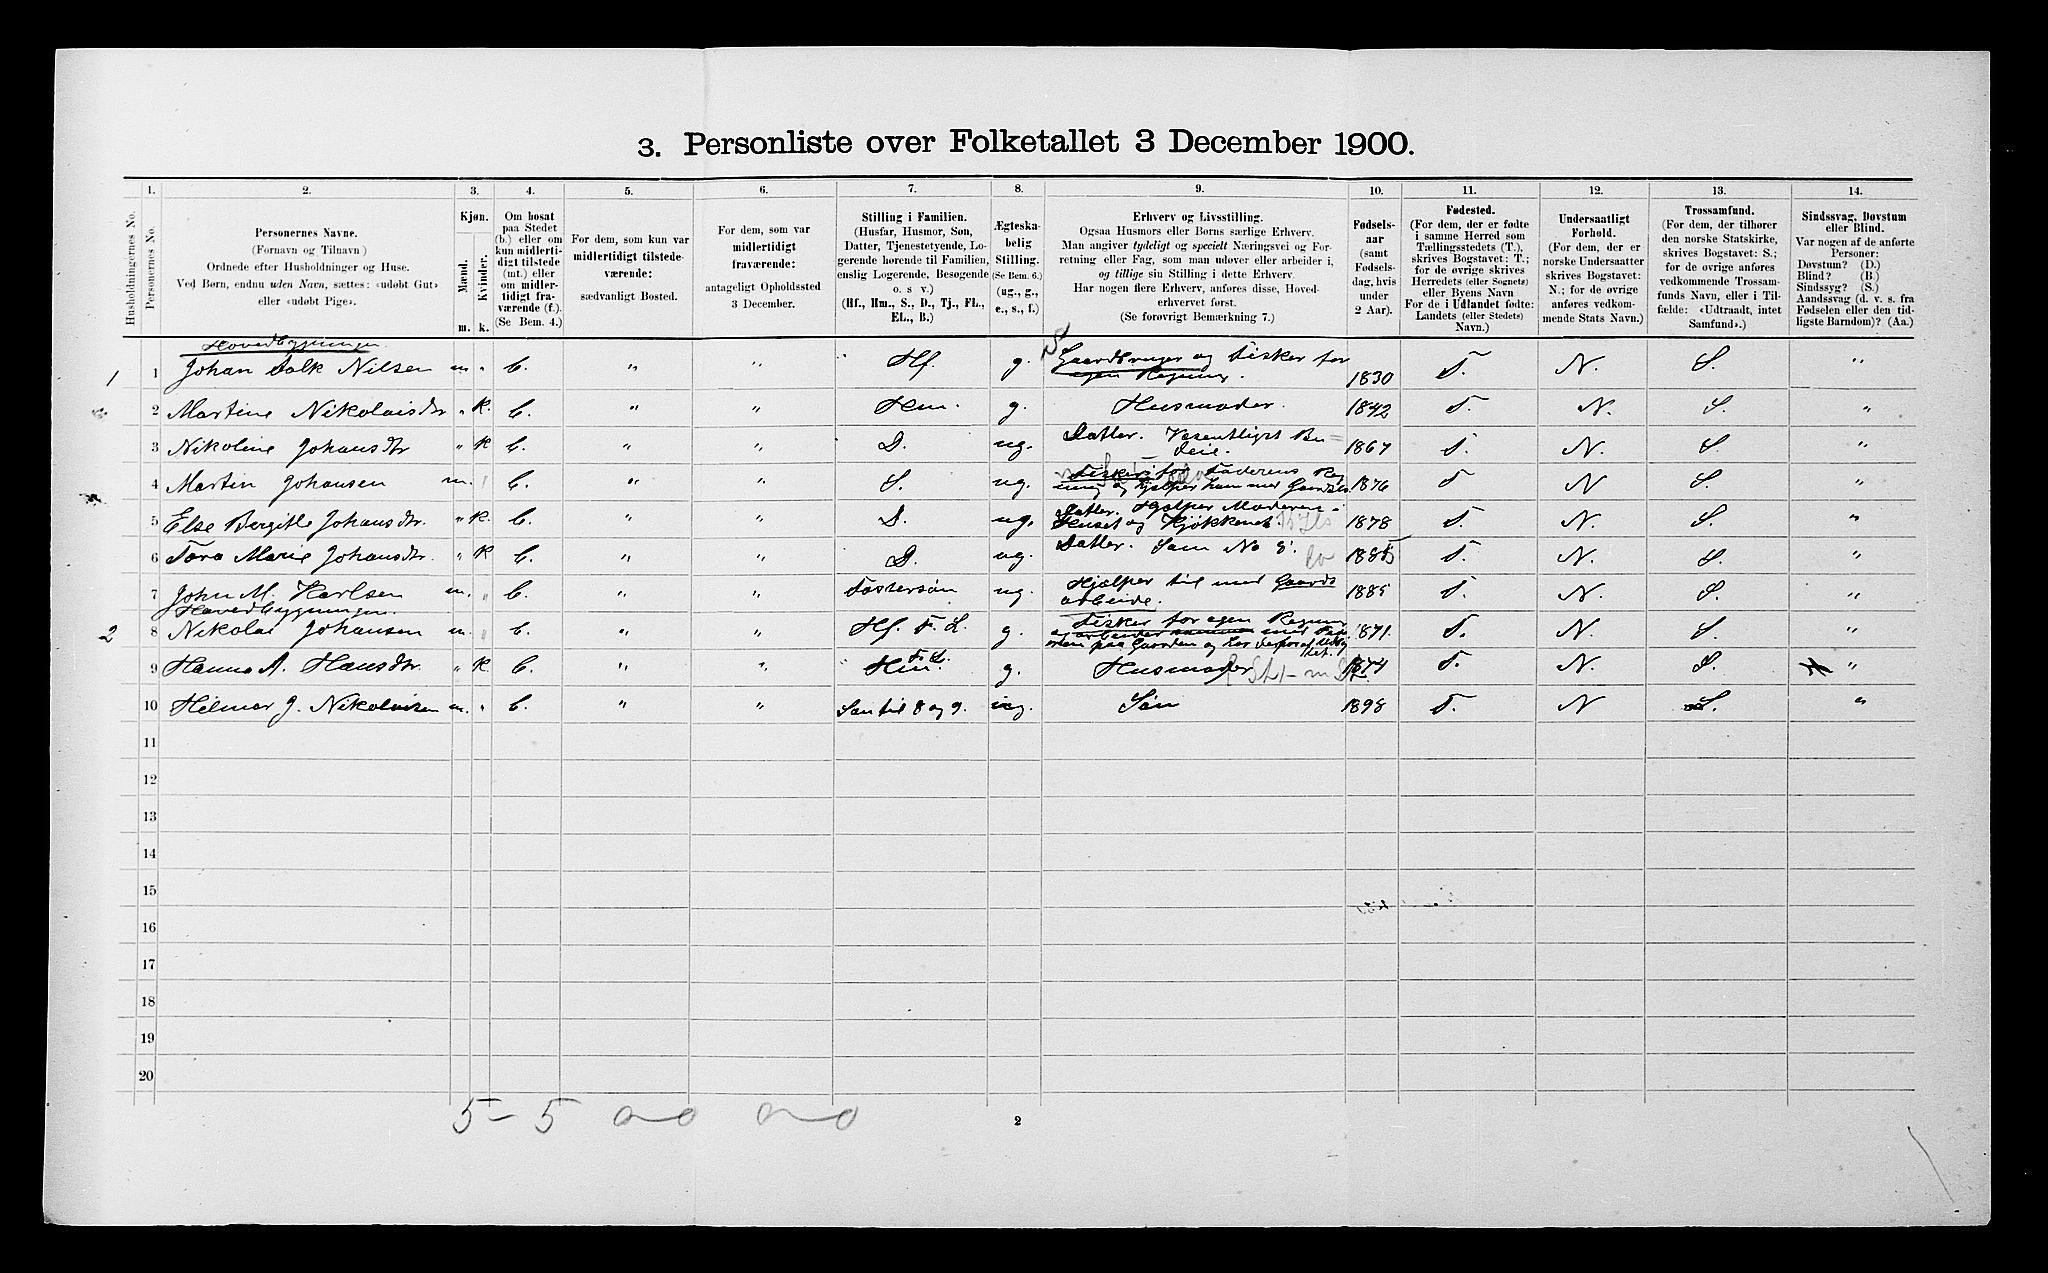 3. Personliste over Folketallet 3 December 1900.
Husholdningernes No.
1.
Personernes No.
2.
Personernes Navne.
(Fornavn og Tilnavn)
Ordnede efter Husholdninger og Huse.
Ved Børn, endnu uden Navn, sættes: «udøbt Gut»
eller «udøbt Pige».
3.
Kjøn.
Mænd.
Kvinder.
m. k.
4.
Om bosat
paa Stedet
(b.) eller om
kun midlerti-
digt tilstede
(mt.) eller
om midler-
tidigt fra-
værende (f.).
(Se Bem. 4.)
5.
For dem, som kun var
midlertidigt tilstede-
værende:
sædvanligt Bosted.
6.
For dem, som var
midlertidigt
fraværende:
antageligt Opholdssted
3 December.
7.
Stilling i Familien.
(Husfar, Husmor, Søn,
Datter, Tjenestetyende, Lo-
gerende hørende til Familien,
enslig Logerende, Besøgende
o. s v.)
(Hf., Hm., S., D., Tj., FL.,
EL., B.)
8.
Ægteska-
belig
Stilling.
(Se Bem. 6.)
(ug., g.,
e., s., f.)
9.
Erhverv og Livsstilling.
Ogsaa Husmors eller Børns særlige Erhverv.
Man angiver tydeligt og specielt Næringsvei og For-
retning eller Fag, som man udøver eller arbeider i,
og tillige sin Stilling i dette Erhverv.
Har nogen flere Erhverv, anføres disse, Hoved-
erhvervet først.
(Se forøvrigt Bemærkning 7.)
10.
Fødsels-
aar
(samt
Fødsels-
dag, hvis
under
2 Aar).
11.
Fødested.
(For dem, der er fødte
i samme Herred som
Tællingsstedets (T.),
skrives Bogstavet: T.;
for de øvrige skrives
Herredets (eller Sognets)
eller Byens Navn
For de i Udlandet fødte:
Landets (eller Stedets)
Navn.)
12.
Undersaatligt
Forhold.
(For dem, der er
norske Undersaatter
skrives Bogstavet:
N.; for de øvrige
anføres vedkom-
mende Stats Navn.)
13.
Trossamfund.
(For dem, der tilhører
den norske Statskirke,
skrives Bogstavet: S.;
for de øvrige anføres
vedkommende Trossam-
funds Navn, eller i Til-
fælde: «Udtraadt, intet
Samfund».)
14.
Sindssvag, Døvstum
eller Blind.
Var nogen af de anførte
Personer:
Døvstum? (D.)
Blind? (B.)
Sindssyg? (S.)
Aandssvag (d. v. s. fra
Fødselen eller den tid-
ligste Barndom)? (Aa.)
Hovedbygningen
1 1 Johan Falk Nilsen m. " b. " " Hf. g. Gaardbruger og Fisker for
egen Regning. 1830 T. N. S. "
2 Martine Nikolaisdtr " k. b. " " Hm. g. Husmoder. 1842 T. N. S. "
3 Nikoline Johansdtr " k b. " " D. ug. Datter. Væsentligst Bu-
deie. 1867 T. N. S. "
4 Martin Johansen m. " b. " " S. ug. Fisker for Faderens Reg
ning og hjælper ham med Gaardsb. 1876 T N S. "
5 Else Bergitte Johansdtr. " k. b. " " D. ug. Datter. Hjælper Moderen i
Huset og Kjøkkenet. 1878 T. N. S. "
6 Tora Marie Johansdtr. " k b. " " D. ug. Datter. Som No 5. 1885 T. N. S. "
7 John M. Karlsen m. " b. " " Fostersøn ug. Hjælper til med Gaards
arbeide. 1885 T. N. S. "
Hovedbygningen.
2 8 Nikolai Johansen m. " b. " " Hf. F. L. g. Fisker for egen Regning
og arbeider sammen med Fad
eren paa Gaarden og har derfor af Udby
tet. 1871. T. N. S. "
9 Hanna A. Hansdtr. " k b. " " Hm. F. L. g. Husmoder 1874 T. N. S. "
10 Hilmar J. Nikolaisen m. " b. " " Søn til 8 og 9. ug. Søn 1898 T. N S. "
11
12
13
14
15
16
17
18
19
20
5 - 5 0-0 0-0
2